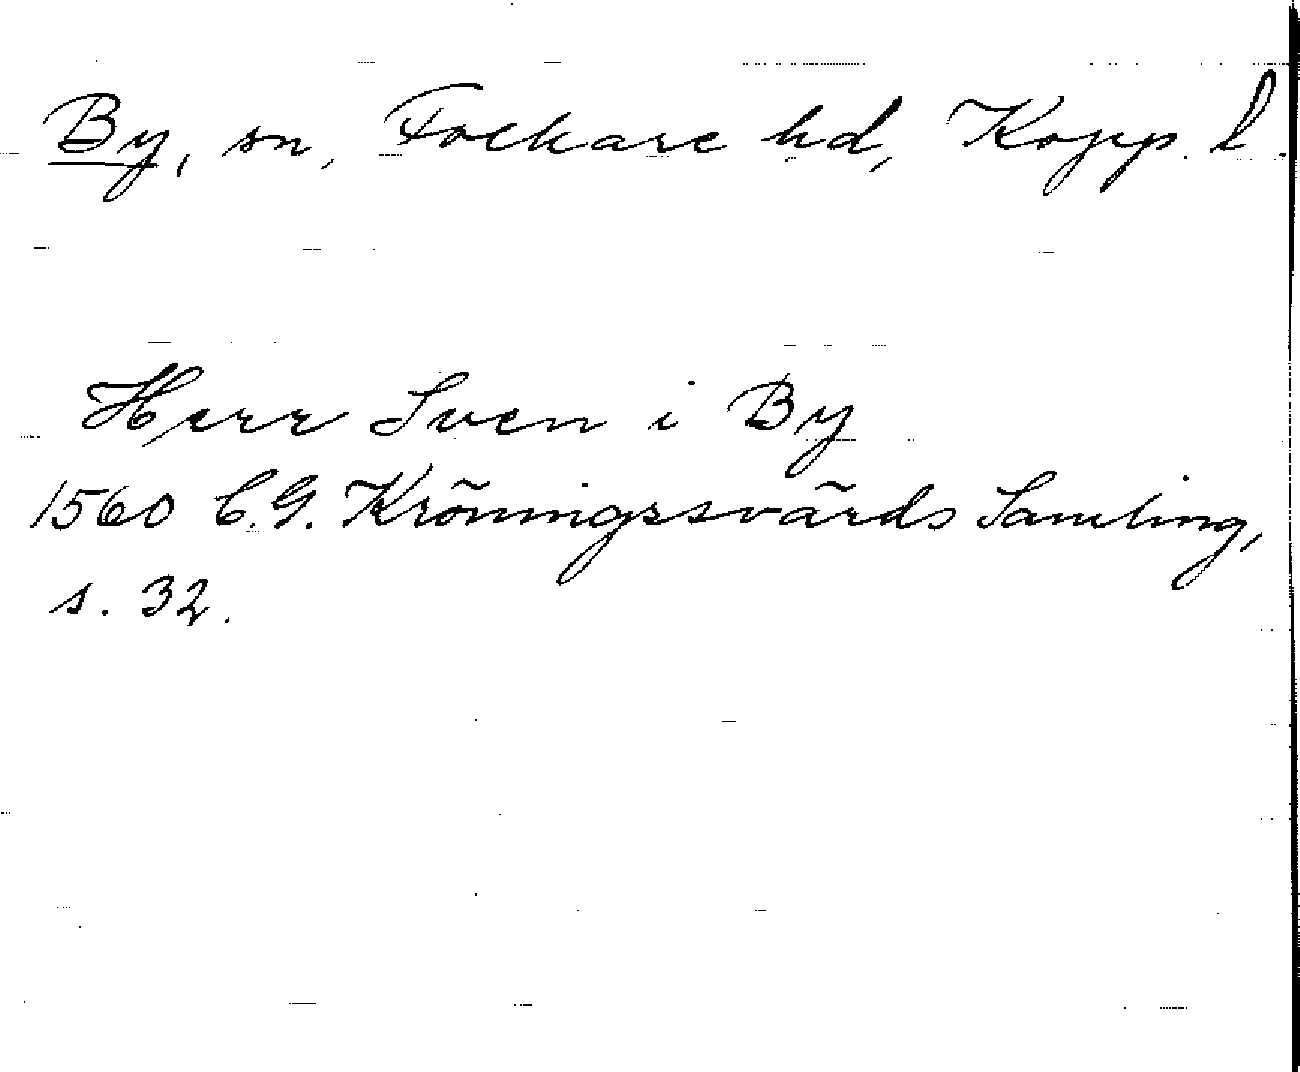 By, sn, Folkare hd, Kopp. l.
Herr Sven i By
1560 C.G. Kröningssvärds Samling,
s. 32.